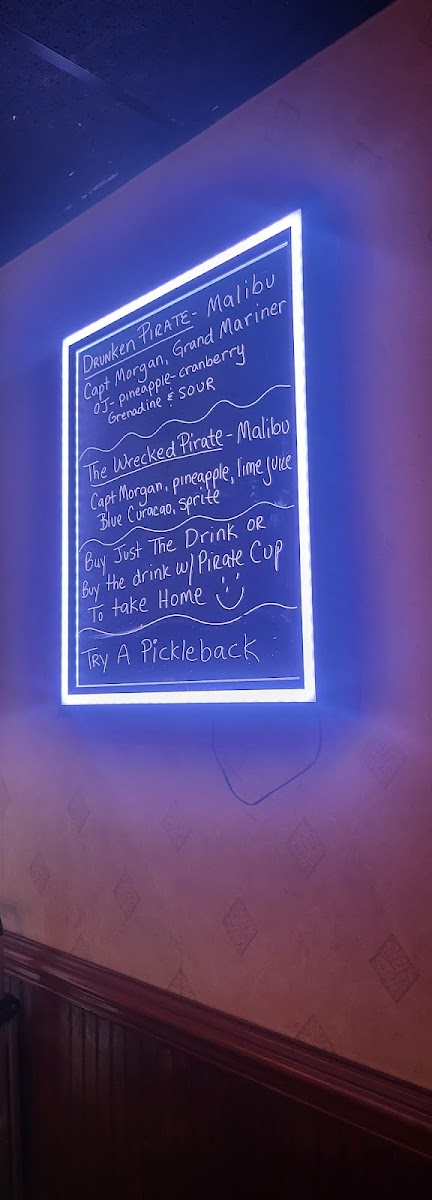 Drunken Pirate - Malibu
Capt Morgan, Grand Mariner
OJ - pineapple - cranberry
Grenadine & Sour
The Wrecked Pirate - Malibu
Capt Morgan, pineapple, lime juice
Blue Curacao, sprite
Buy Just The Drink or
Buy the drink w/ Pirate Cup
To take Home
Try A Pickleback